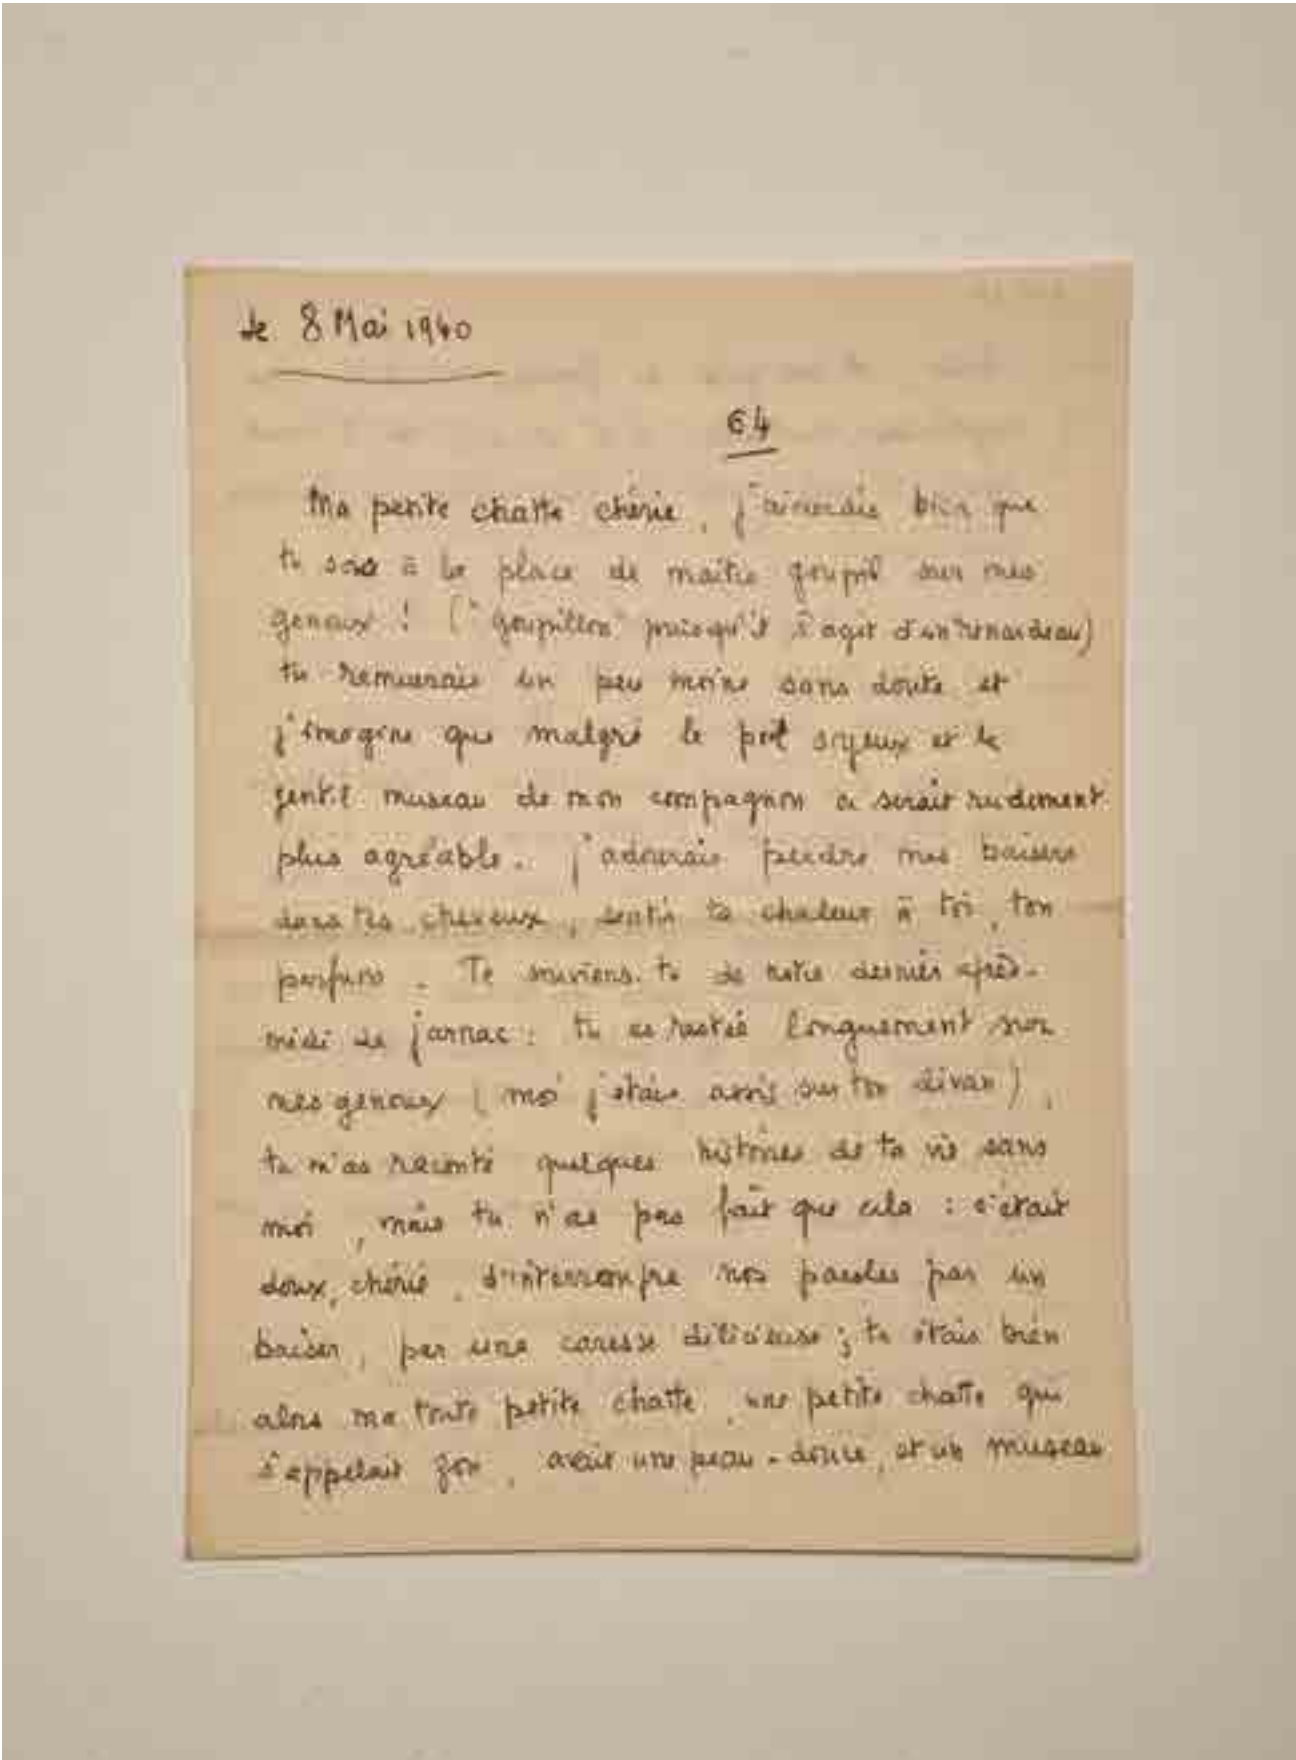 le 8 Mai 1940
64
Ma petite chatte chérie, j'aimerais bien que
tu sois à la place de maître goupil sur mes
genoux ! ("goupillon" puisqu'il s'agit d'un renardeau)
tu remuerais un peu moins sans doute et
j'imagine que malgré le poil soyeux et le
gentil museau de mon compagnon ce serait rudement
plus agréable. j'adorerais perdre mes baisers
dans tes cheveux, sentir ta chaleur à toi, ton
parfum. Te souviens-tu de notre dernier après-
midi de jarnac : tu es restée longuement sur
mes genoux (moi j'étais assis sur ton divan),
tu m'as raconté quelques histoires de ta vie sans
moi, mais tu n'as pas fait que cela : c'était
doux, chérie, d'interrompre nos paroles par un
baiser, par une caresse délicieuse ; tu étais bien
alors ma toute petite chatte, une petite chatte qui
s'appelait zou, avait une peau-douce, et un museau